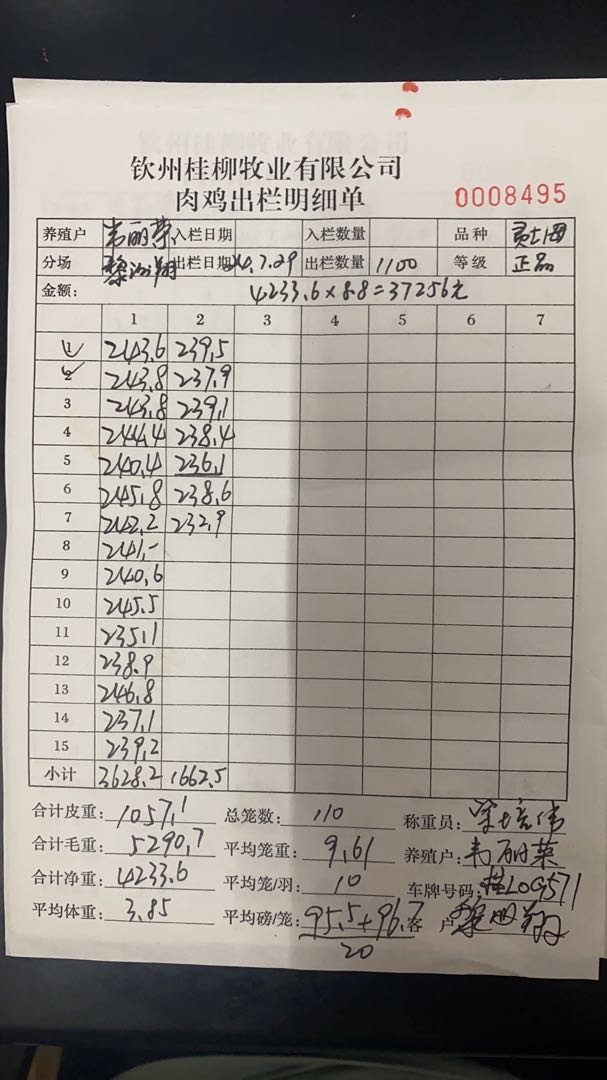 钦州桂柳牧业有限公司
肉鸡出栏明细单
0008495
养殖户 韦丽荣 入栏日期 入栏数量 品种
分场 出栏日期 24.7.29 出栏数量 1100 等级 正品
金额: 4233.6×8.8=37256元
1 2 3 4 5 6 7
1 243.6 239.5
2 243.8 237.9
3 243.8 239.1
4 244.4 238.4
5 240.4 236.1
6 245.8 238.6
7 242.2 232.9
8 241.-
9 240.6
10 245.5
11 235.1
12 238.9
13 246.8
14 237.1
15 239.2
小计 3628.2 1662.5
合计皮重: 1057.1 总笼数: 110 称重员:
合计毛重: 5290.7 平均笼重: 9.61 养殖户:
合计净重: 4233.6 平均笼/羽: 10 车牌号码:
平均体重: 3.85 平均磅/笼: 95.5+96.7 客户
20